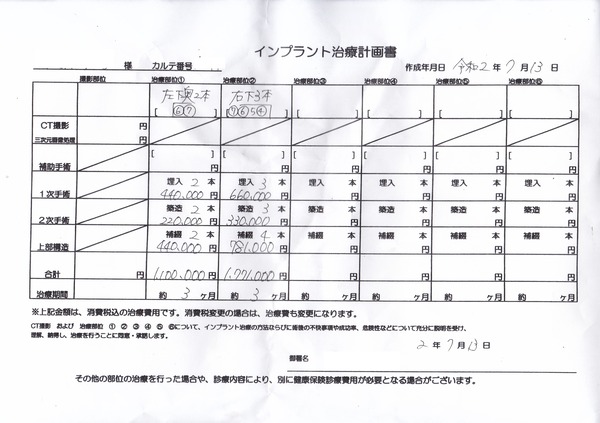 インプラント治療計画書
様 カルテ番号
作成年月日 令和2年 7月 13日
撮影部位 治療部位① 治療部位② 治療部位③ 治療部位④ 治療部位⑤ 治療部位⑥
左下奥2本 右下3本
[⑥⑦] [⑦⑥5④] [ ] [ ] [ ] [ ]
CT撮影 円
三次元画像処理 円
補助手術 [ ] 円 [ ] 円 [ ] 円 [ ] 円 [ ] 円 [ ] 円
埋入 2 本 埋入 3 本 埋入 本 埋入 本 埋入 本 埋入 本
1次手術 440,000円 660,000円 円 円 円 円
築造 2 本 築造 3 本 築造 本 築造 本 築造 本 築造 本
2次手術 220,000円 330,000円 円 円 円 円
補綴 2 本 補綴 4 本 補綴 本 補綴 本 補綴 本 補綴 本
上部構造 440,000円 781,000円 円 円 円 円
合計 円 1,100,000円 1,771,000円 円 円 円 円
治療期間 約 3 ヶ月 約 3 ヶ月 約 ヶ月 約 ヶ月 約 ヶ月 約 ヶ月
※上記金額は、消費税込の治療費用です。消費税変更の場合は、治療費も変更になります。
CT撮影 および 治療部位 ① ② ③ ④ ⑤ ⑥について、インプラント治療の方法ならびに術後の不快事項や成功率、危険性などについて充分に説明を受け、
理解、納得し、治療を行うことに同意・承諾します。
2年 7月 13日
御署名
その他の部位の治療を行った場合や、診療内容により、別に健康保険診療費用が必要となる場合がございます。